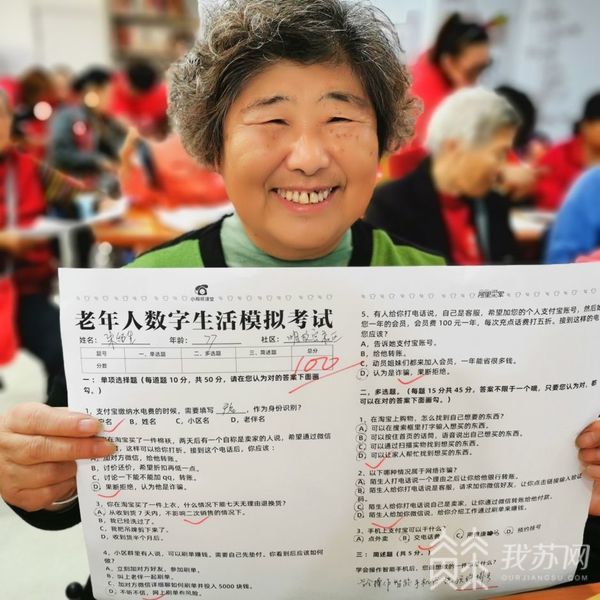 小棉袄课堂
阿里巴巴
老年人数字生活模拟考试
姓名： 年龄：77 社区：
题号 一、单选题 二、多选题 三、简述题 总分
分数 100
一：单项选择题（每道题10分，共50分，请在您认为对的答案下面画勾。）
1、支付宝缴纳水电费的时候，需要填写 ，作为身份识别？
户名 B、姓名 C、小区名 D、老伴名
在淘宝买了一件棉袄，两天后有一个自称是卖家的人说，希望通过微信
，这样可以给你打折，接到这个电话后，你应该：
加对方微信，给他转账。
B、讨价还价，希望折扣再低一点。
C、讨论一下能不能加QQ，转账。
D、果断拒绝，认为他是诈骗。
3、你在淘宝买了一件上衣，什么情况下能七天无理由退换货？
A、从收到货7天内，不影响二次销售的情况下。
B、我已经洗过了。
C、我把吊牌剪下来了。
D、收到货半个月后。
4、小区群里有人说，可以刷单赚钱，需要自己先垫付，你看到后应该如何做？
A、立刻加对方好友，参加刷单。
B、叫上老伴一起刷单。
C、加对方微信详细如何刷单投入5000块钱。
D、不听不信，网上刷单有风险。
5、有人给你打电话，自己是客服，希望加您的个人支付宝账号，然后
您一年的会员，会员费100元一年，每次充点话费打五折。接到这样的电
您应该？
A、告诉她支付宝账号。
B、给他转账。
C、动员姐妹们都来加入会员，一年能省很多钱。
D、认为是诈骗，果断拒绝。
二、多选题。（每题15分共45分，答案不限于一个哦，只要您认为对，都可以在对的答案下画勾。）
1、在淘宝上购物，怎么找到自己想要的东西？
A、可以在搜索框里打字输入想买的东西。
B、可以按住首页的话筒，语音说出自己想买的东西。
C、可以通过扫描实物找到想买的东西。
D、可以让家人帮忙找到想买的东西。
2、以下哪种情况属于网络诈骗？
A、陌生人打电话说一个理由之后让你给他银行转账。
B、陌生人给你打电话说是客服，请求加你微信好友，让你点击链接输入验证
C、陌生人给你打电话说自己是卖家，让你通过微信转账给他付款。
D、陌生人给加你微信后，给你介绍工作通过刷单来赚钱。
3、手机上支付宝可以干什么？
A、点外卖 B、交电话费 D、预约挂号
三、简述题（共5分。）
学会操作智能手机后，
我苏网
OURJIANGSU.COM